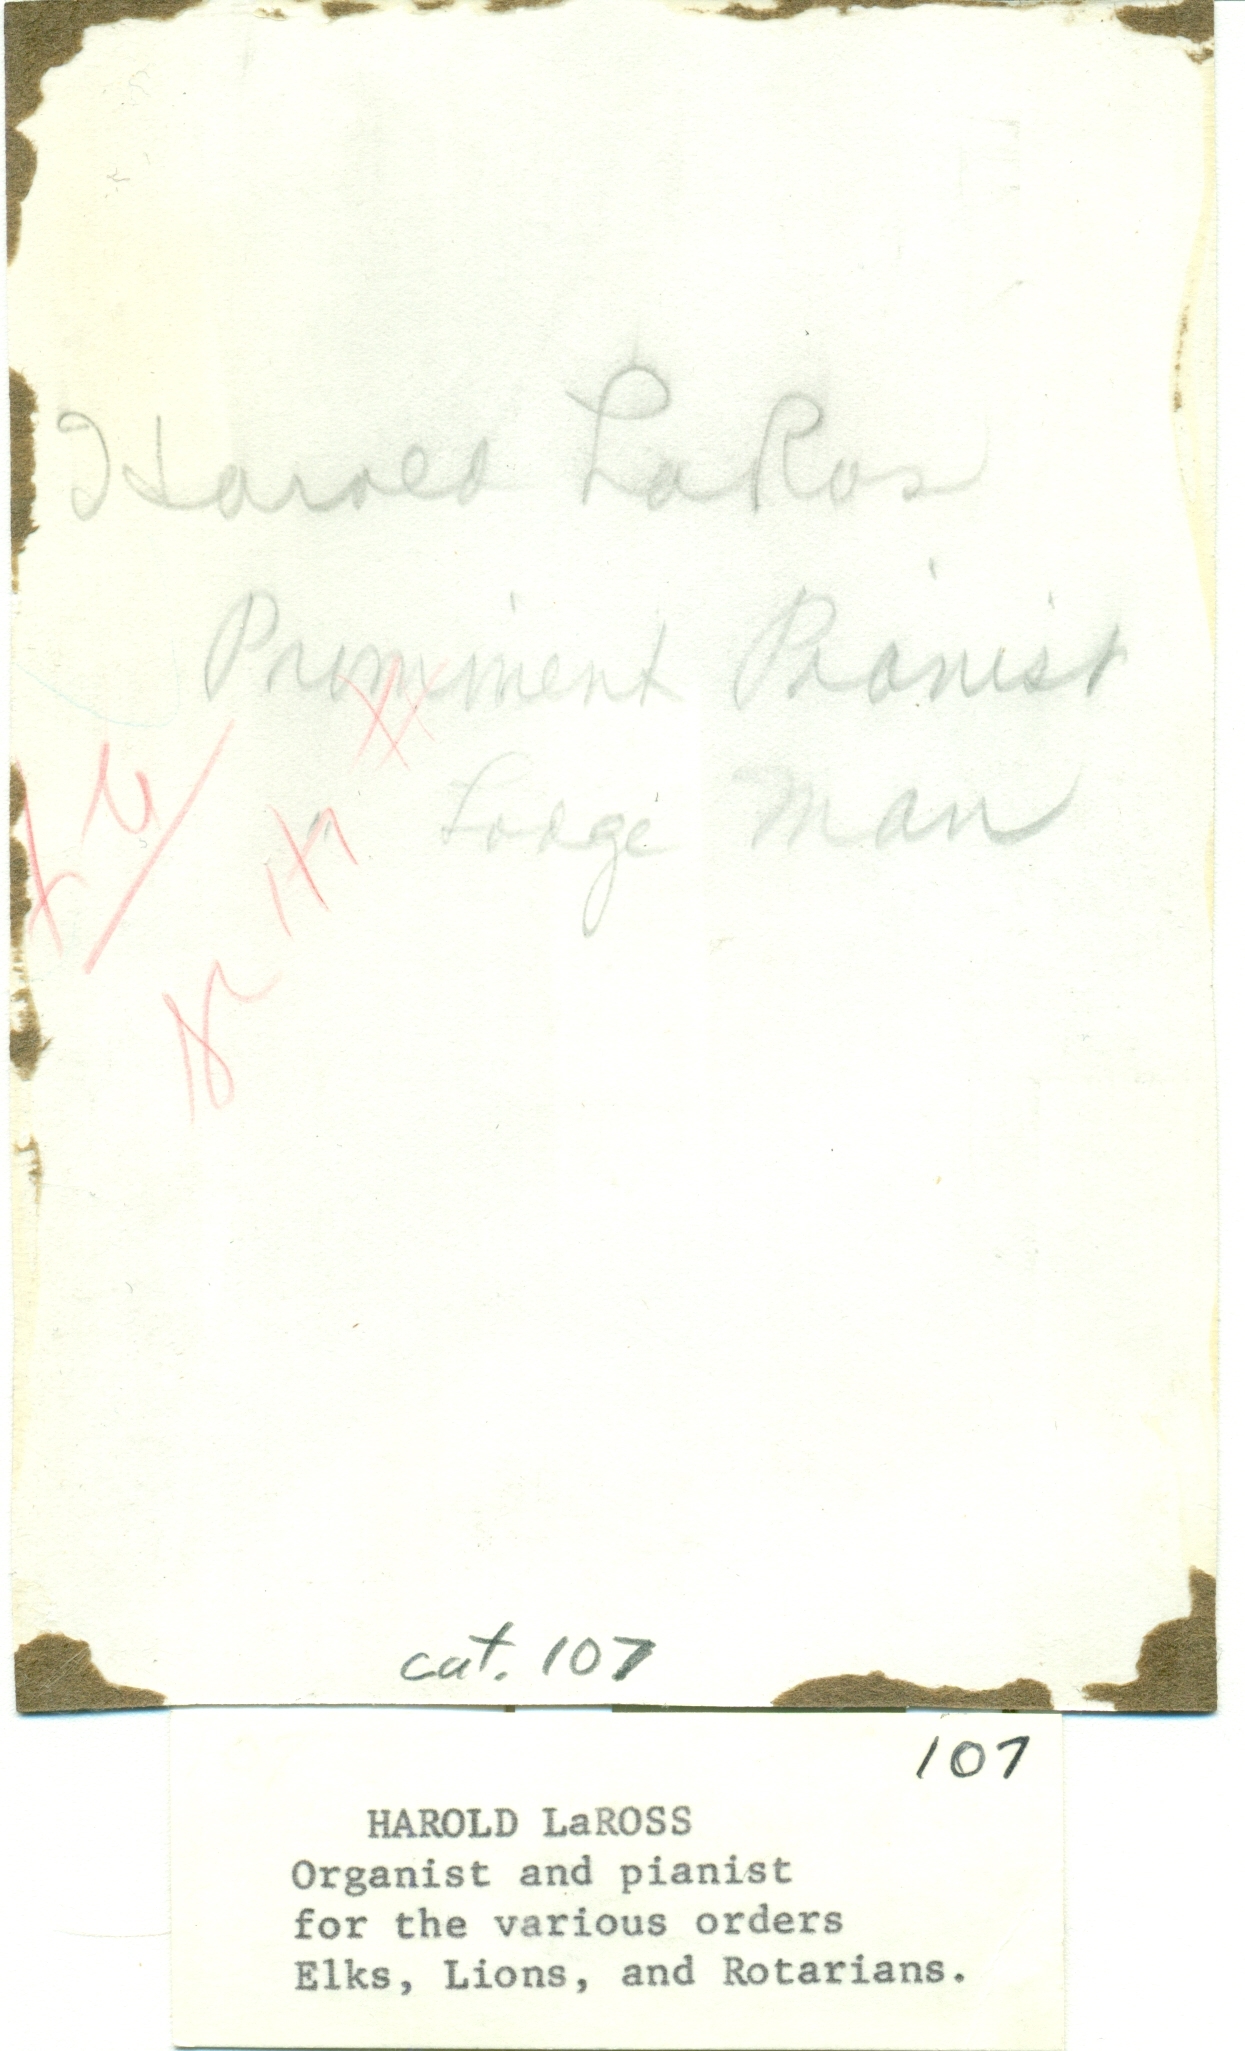 Harold LaRoss
Prominent Pianist
Lodge Man
cat. 107
107
HAROLD LaROSS
Organist and pianist
for the various orders
Elks, Lions, and Rotarians.